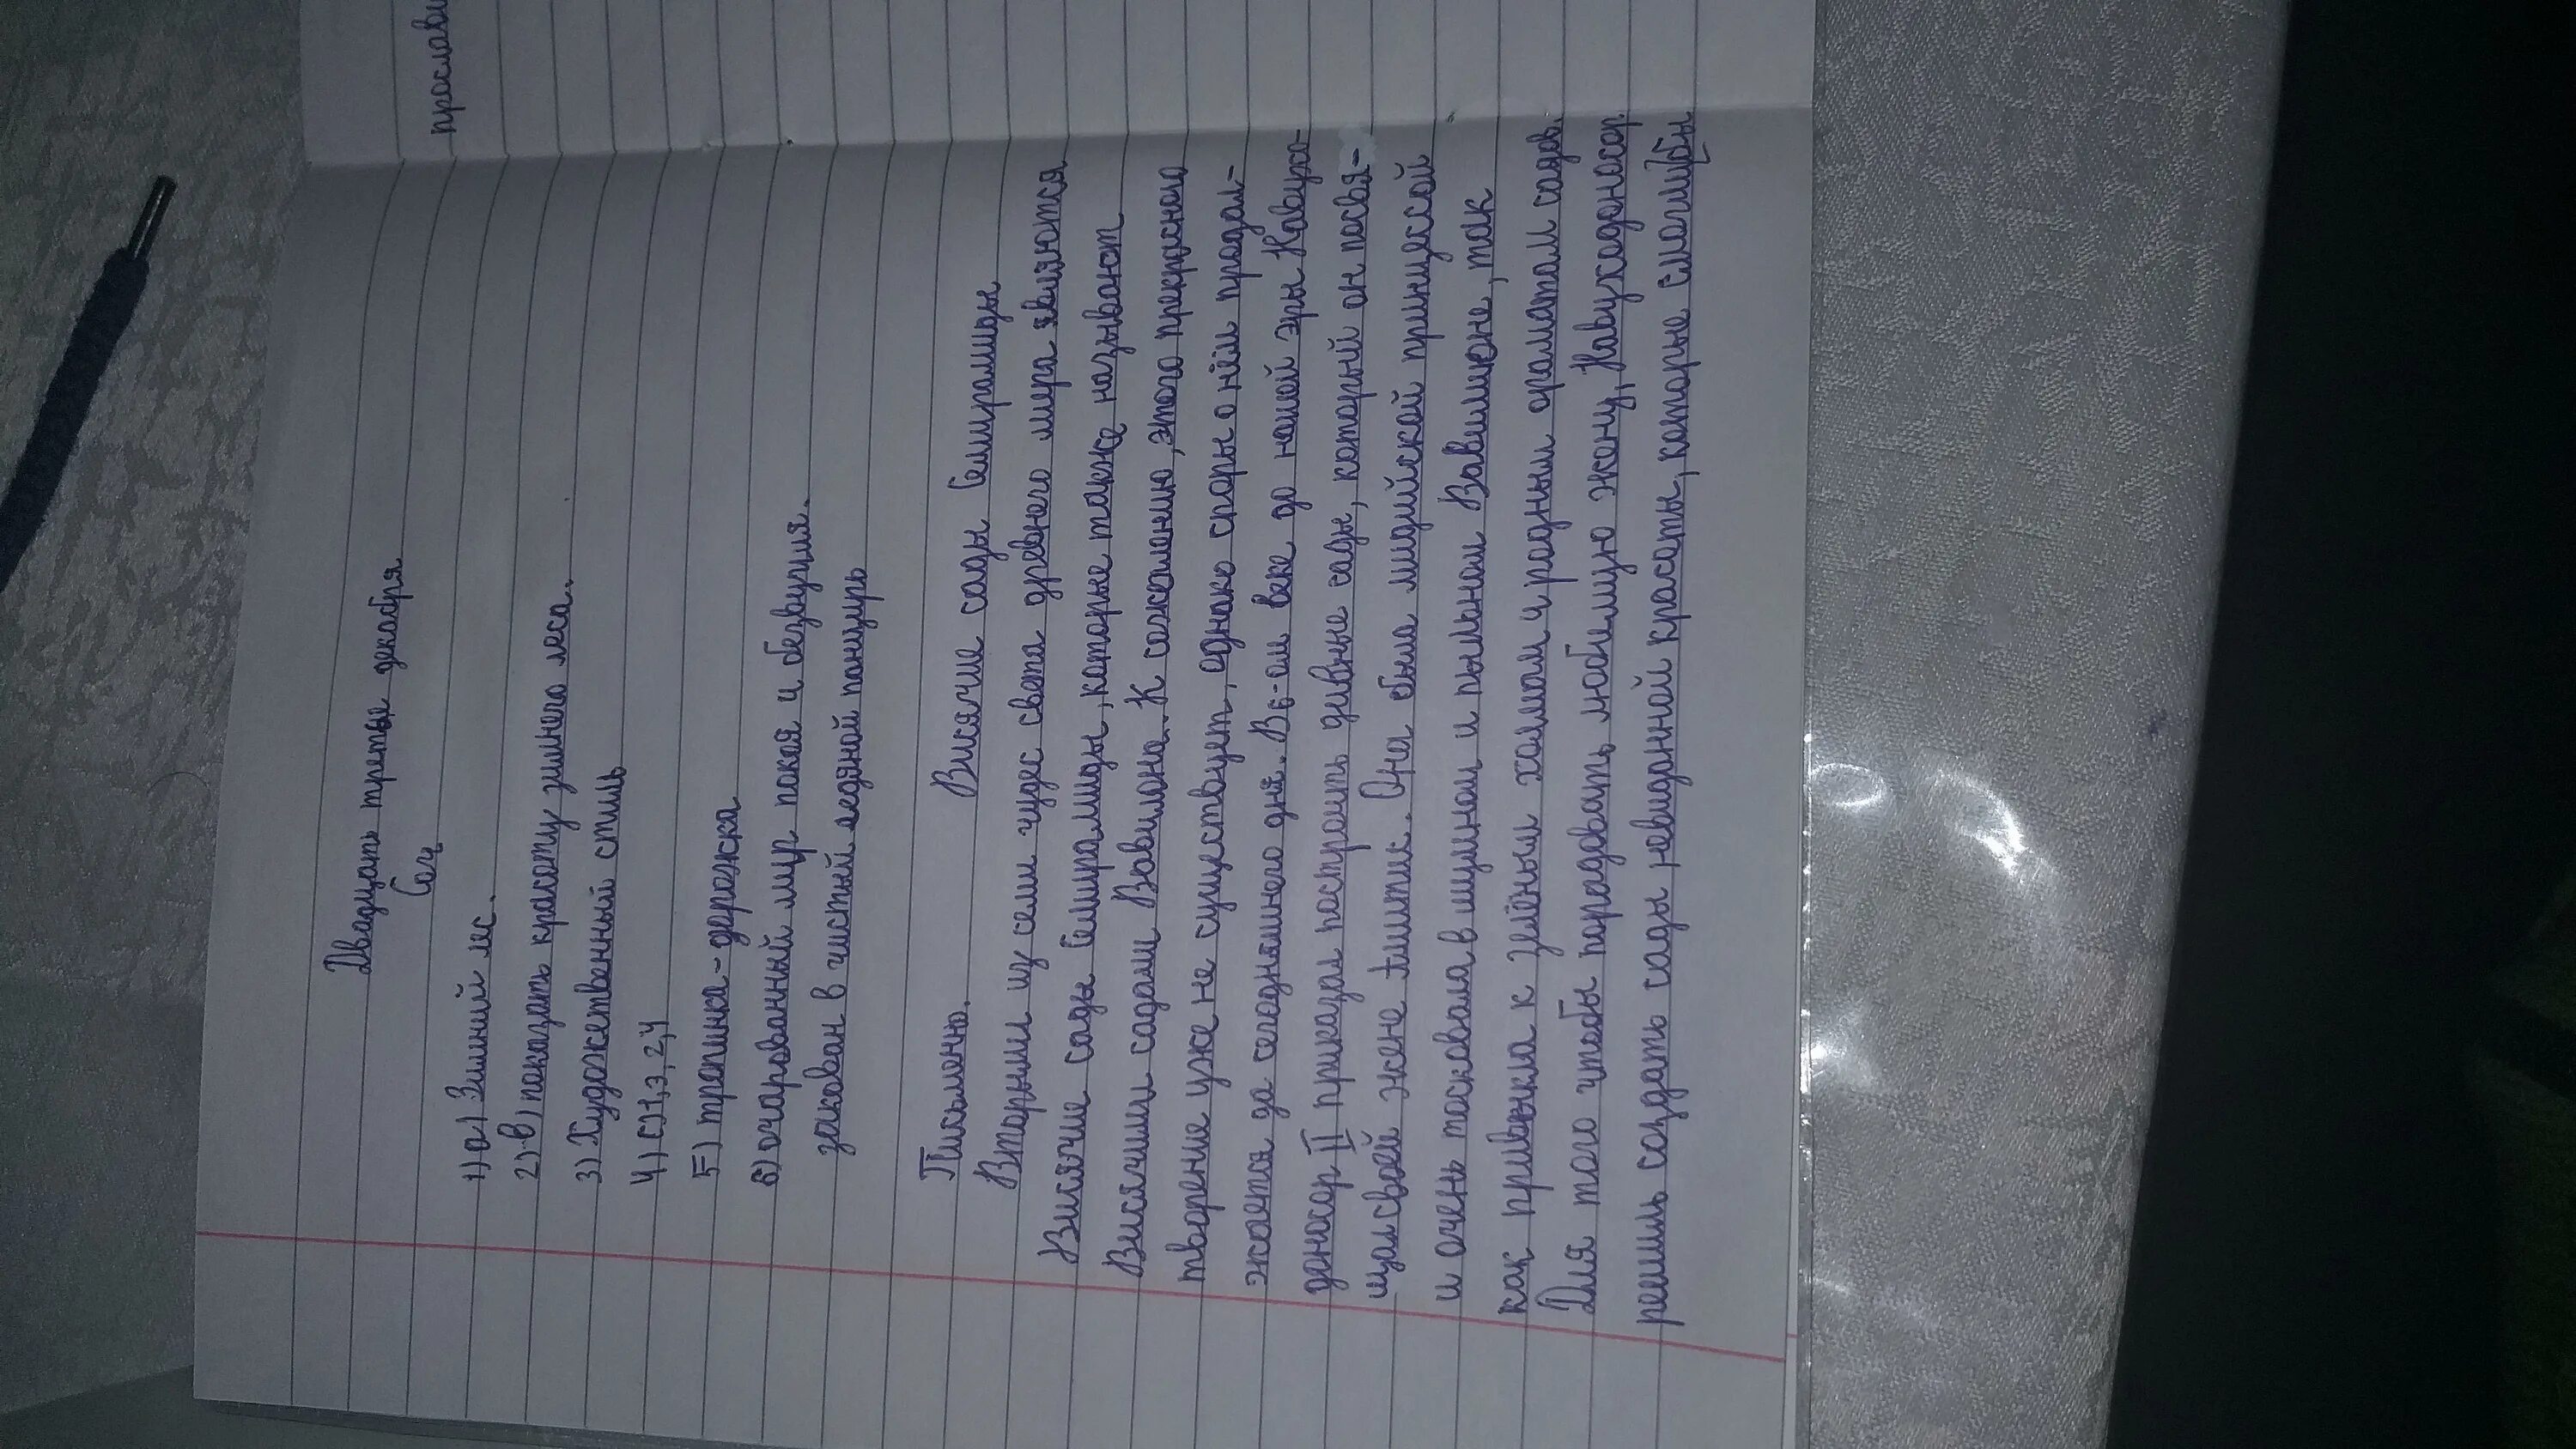 Двадцать третье декабря
Соч
1) а) Зимний лес.
2) в) показать красоту зимнего леса.
3) Художественный стиль
4) с) 1, 3, 2, 4
5) тропинка - дорожка
6) очарованный мир покоя и безвучия.
закован в чистый ледяной панцирь
Письменно. Висячие сады Семирамиды
Вторыми из семи чудес света древнего мира являются
Висячие сады Семирамиды, которые также называют
Висячими садами Вавилона. К сожалению, этого прекрасного
творение уже не существует, однако споры о нём продол-
жается до сегодняшнего дня. В 6-ом веке до нашей эры Навухо-
доносор II приказал построить дивные сады, который он посвя-
щал своей жене Амитис. Она была мидийской принцессой
и очень тосковала в шумном и пыльном Вавилионе, так
как привыкла к зелёным холмам и родным ароматам садов.
Для того чтобы порадовать любимую жену, Навуходоносор
решил создать сады невиданной красоты, которые смогли бы
прослави